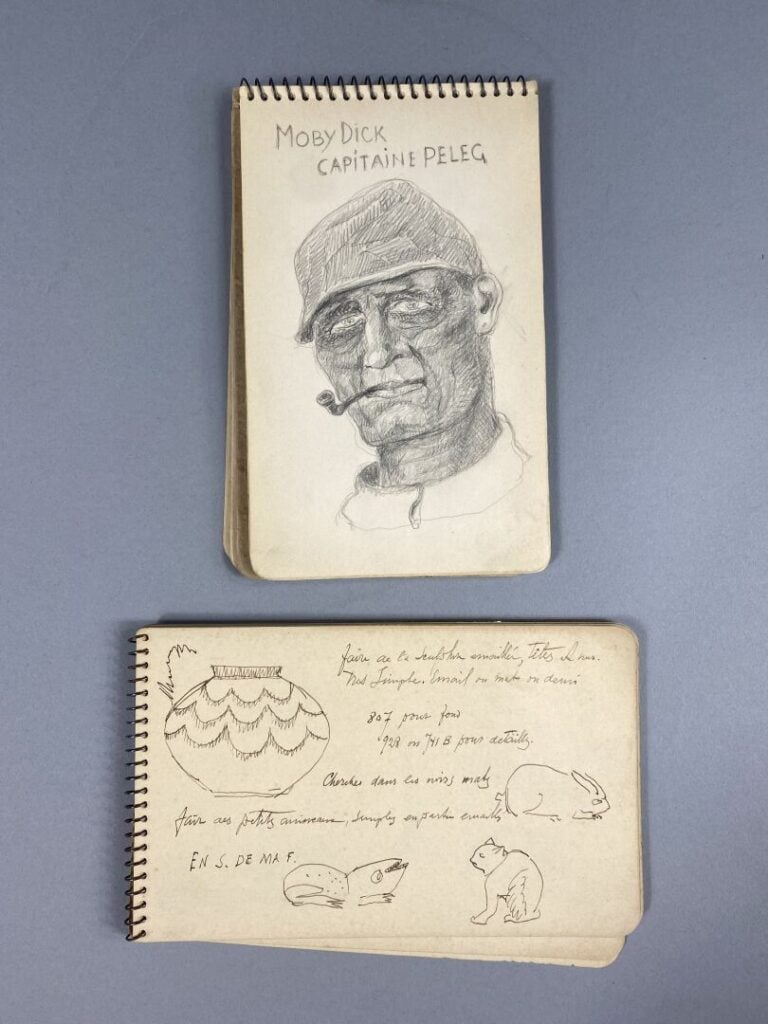 MOBY DICK
CAPITAINE PELEG
faire de la sculpture émaillée, têtes et nus.
très simple. émail ou mat ou demi
807 pour fond
928 ou 741 B pour détails.
Chercher dans les noirs mats
faire des petits animaux, simples en partie émaillés
EN S. DE MA F.